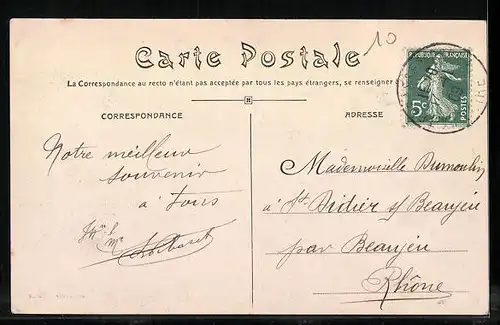 10
Carte Postale
La Correspondance au recto n'étant pas acceptée par tous les pays étrangers, se renseigner
REPUBLIQUE FRANÇAISE
5c
POSTES
CORRESPONDANCE
ADRESSE
Notre meilleur
souvenir
à tous
Mademoiselle Dumoulin
à St Didier s/ Beaujeu
par Beaujeu
Rhône